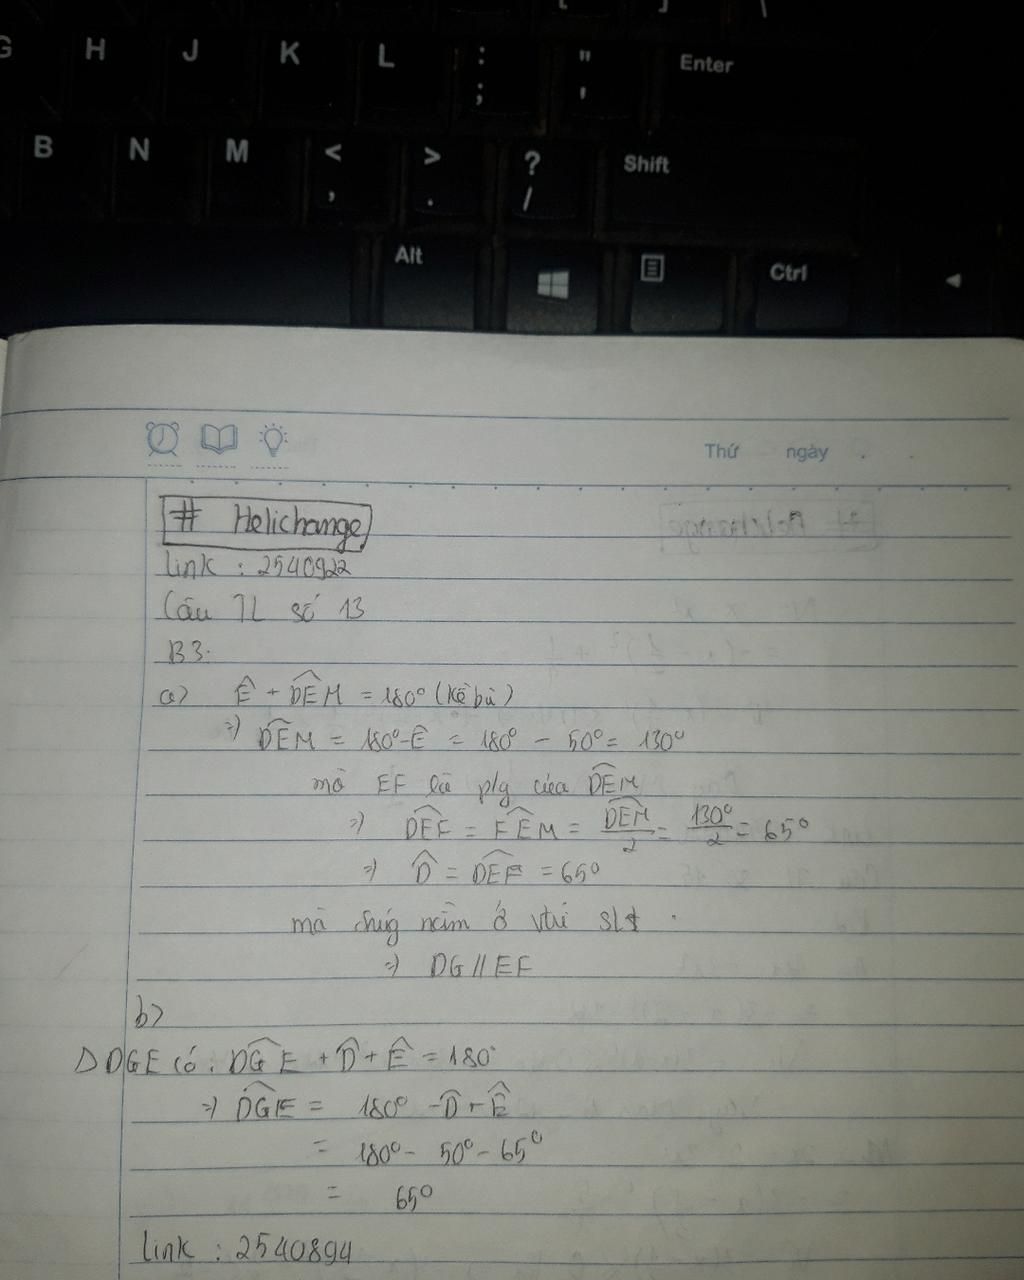 G H J K L : ; " ' Enter
B N M < , > . ? / Shift
Alt Ctrl
Thứ ngày
# Helichange
link : 2540922
Câu TL số 13
B3.
a) Ê + DEM = 180° (kề bù)
=> DEM = 180° - Ê = 180° - 50° = 130°
mà EF là p/g của DEM
=> DEF = FEM = DEM/2 = 130°/2 = 65°
=> D = DEF = 65°
mà chúg nằm ở vtrí slt
=> DG // EF
b)
Δ DGE có : DGE + D + Ê = 180°
=> DGE = 180° - D + Ê
= 180° - 50° - 65°
= 65°
link : 2540894